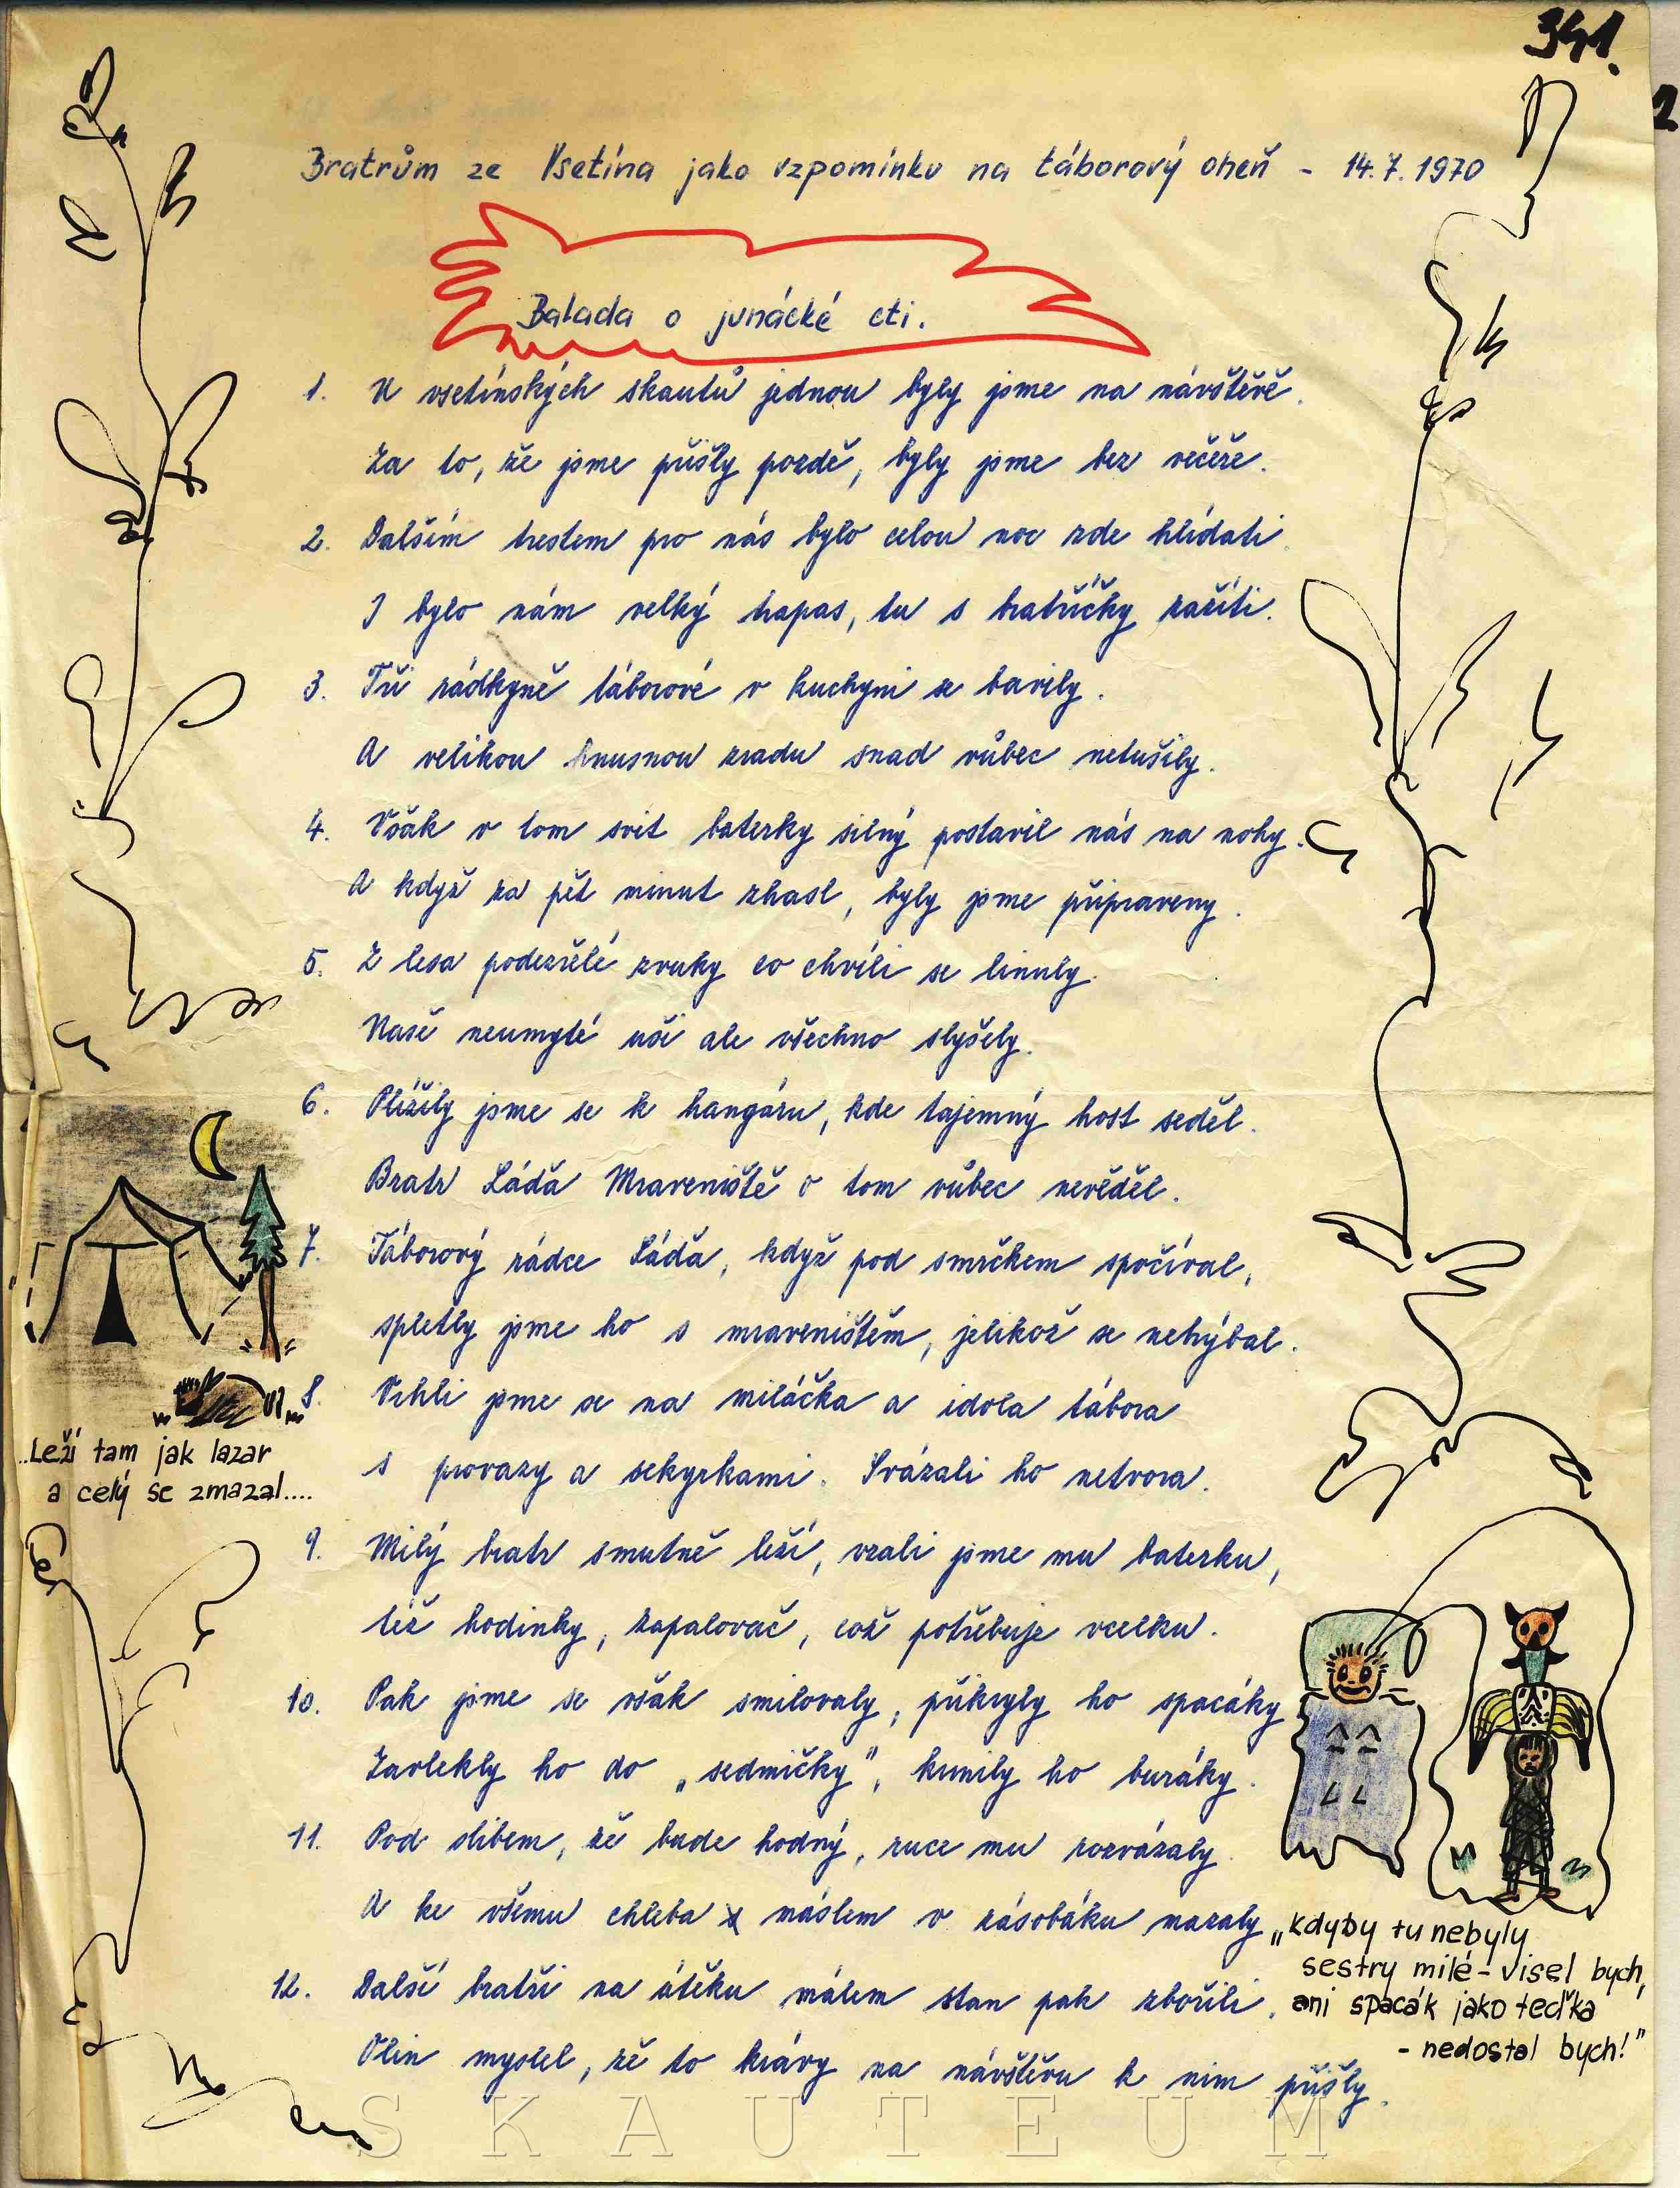 341.
2
Bratrům ze Vsetína jako vzpomínku na táborový oheň - 14.7.1970
Balada o junácké cti.
1. U vsetínských skautů jednou byly jsme na návštěvě.
Za to, že jsme přišly pozdě, byly jsme bez večeře.
2. Dalším trestem pro nás bylo celou noc zde hlídati.
I bylo nám velký trapas, tu s bratříčky zažíti.
3. Tři rádkyně táborové v kuchyni se bavily.
A velikou hnusnou zradu snad vůbec netušily.
4. Však v tom svit baterky silný postavil nás na nohy.
A když za pět minut zhasl, byly jsme připraveny.
5. Z lesa podezřelé zvuky co chvíli se linuly.
Naše neumyté uši ale všechno slyšely.
6. Plížily jsme se k hangáru, kde tajemný host seděl.
Bratr Láďa Mraveniště o tom vůbec nevěděl.
7. Táborový rádce Láďa, když pod smrčkem spočíval,
spletly jsme ho s mraveništěm, jelikož se nehýbal.
8. Vrhli jsme se na miláčka a idola tábora
s provazy a sekyrkami. Svázali ho netvora.
..Leží tam jak lazar
a celý se zmazal....
9. Milý bratr smutně leží, vzali jsme mu baterku,
též hodinky, zapalovač, což potřebuje vcelku.
10. Pak jsme se však smilovaly, přikryly ho spacáky
Zavlekly ho do „sedmičky", krmily ho buráky.
11. Pod slibem, že bude hodný, ruce mu rozvázaly.
A ke všemu chleba s máslem v zásobáku mazaly
12. Další bratři na útěku málem stan pak zbořili.
Olin myslel, že to krávy na návštěvu k nim přišly.
„Kdyby tu nebyly
sestry milé - visel bych,
ani spacák jako teďka
- nedostal bych!"
SKAUTEUM